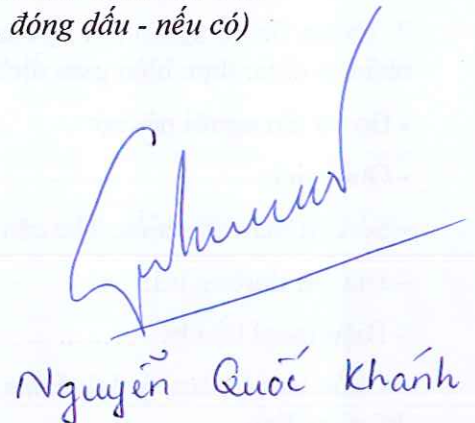 đóng dấu - nếu có)
Nguyễn Quốc Khánh